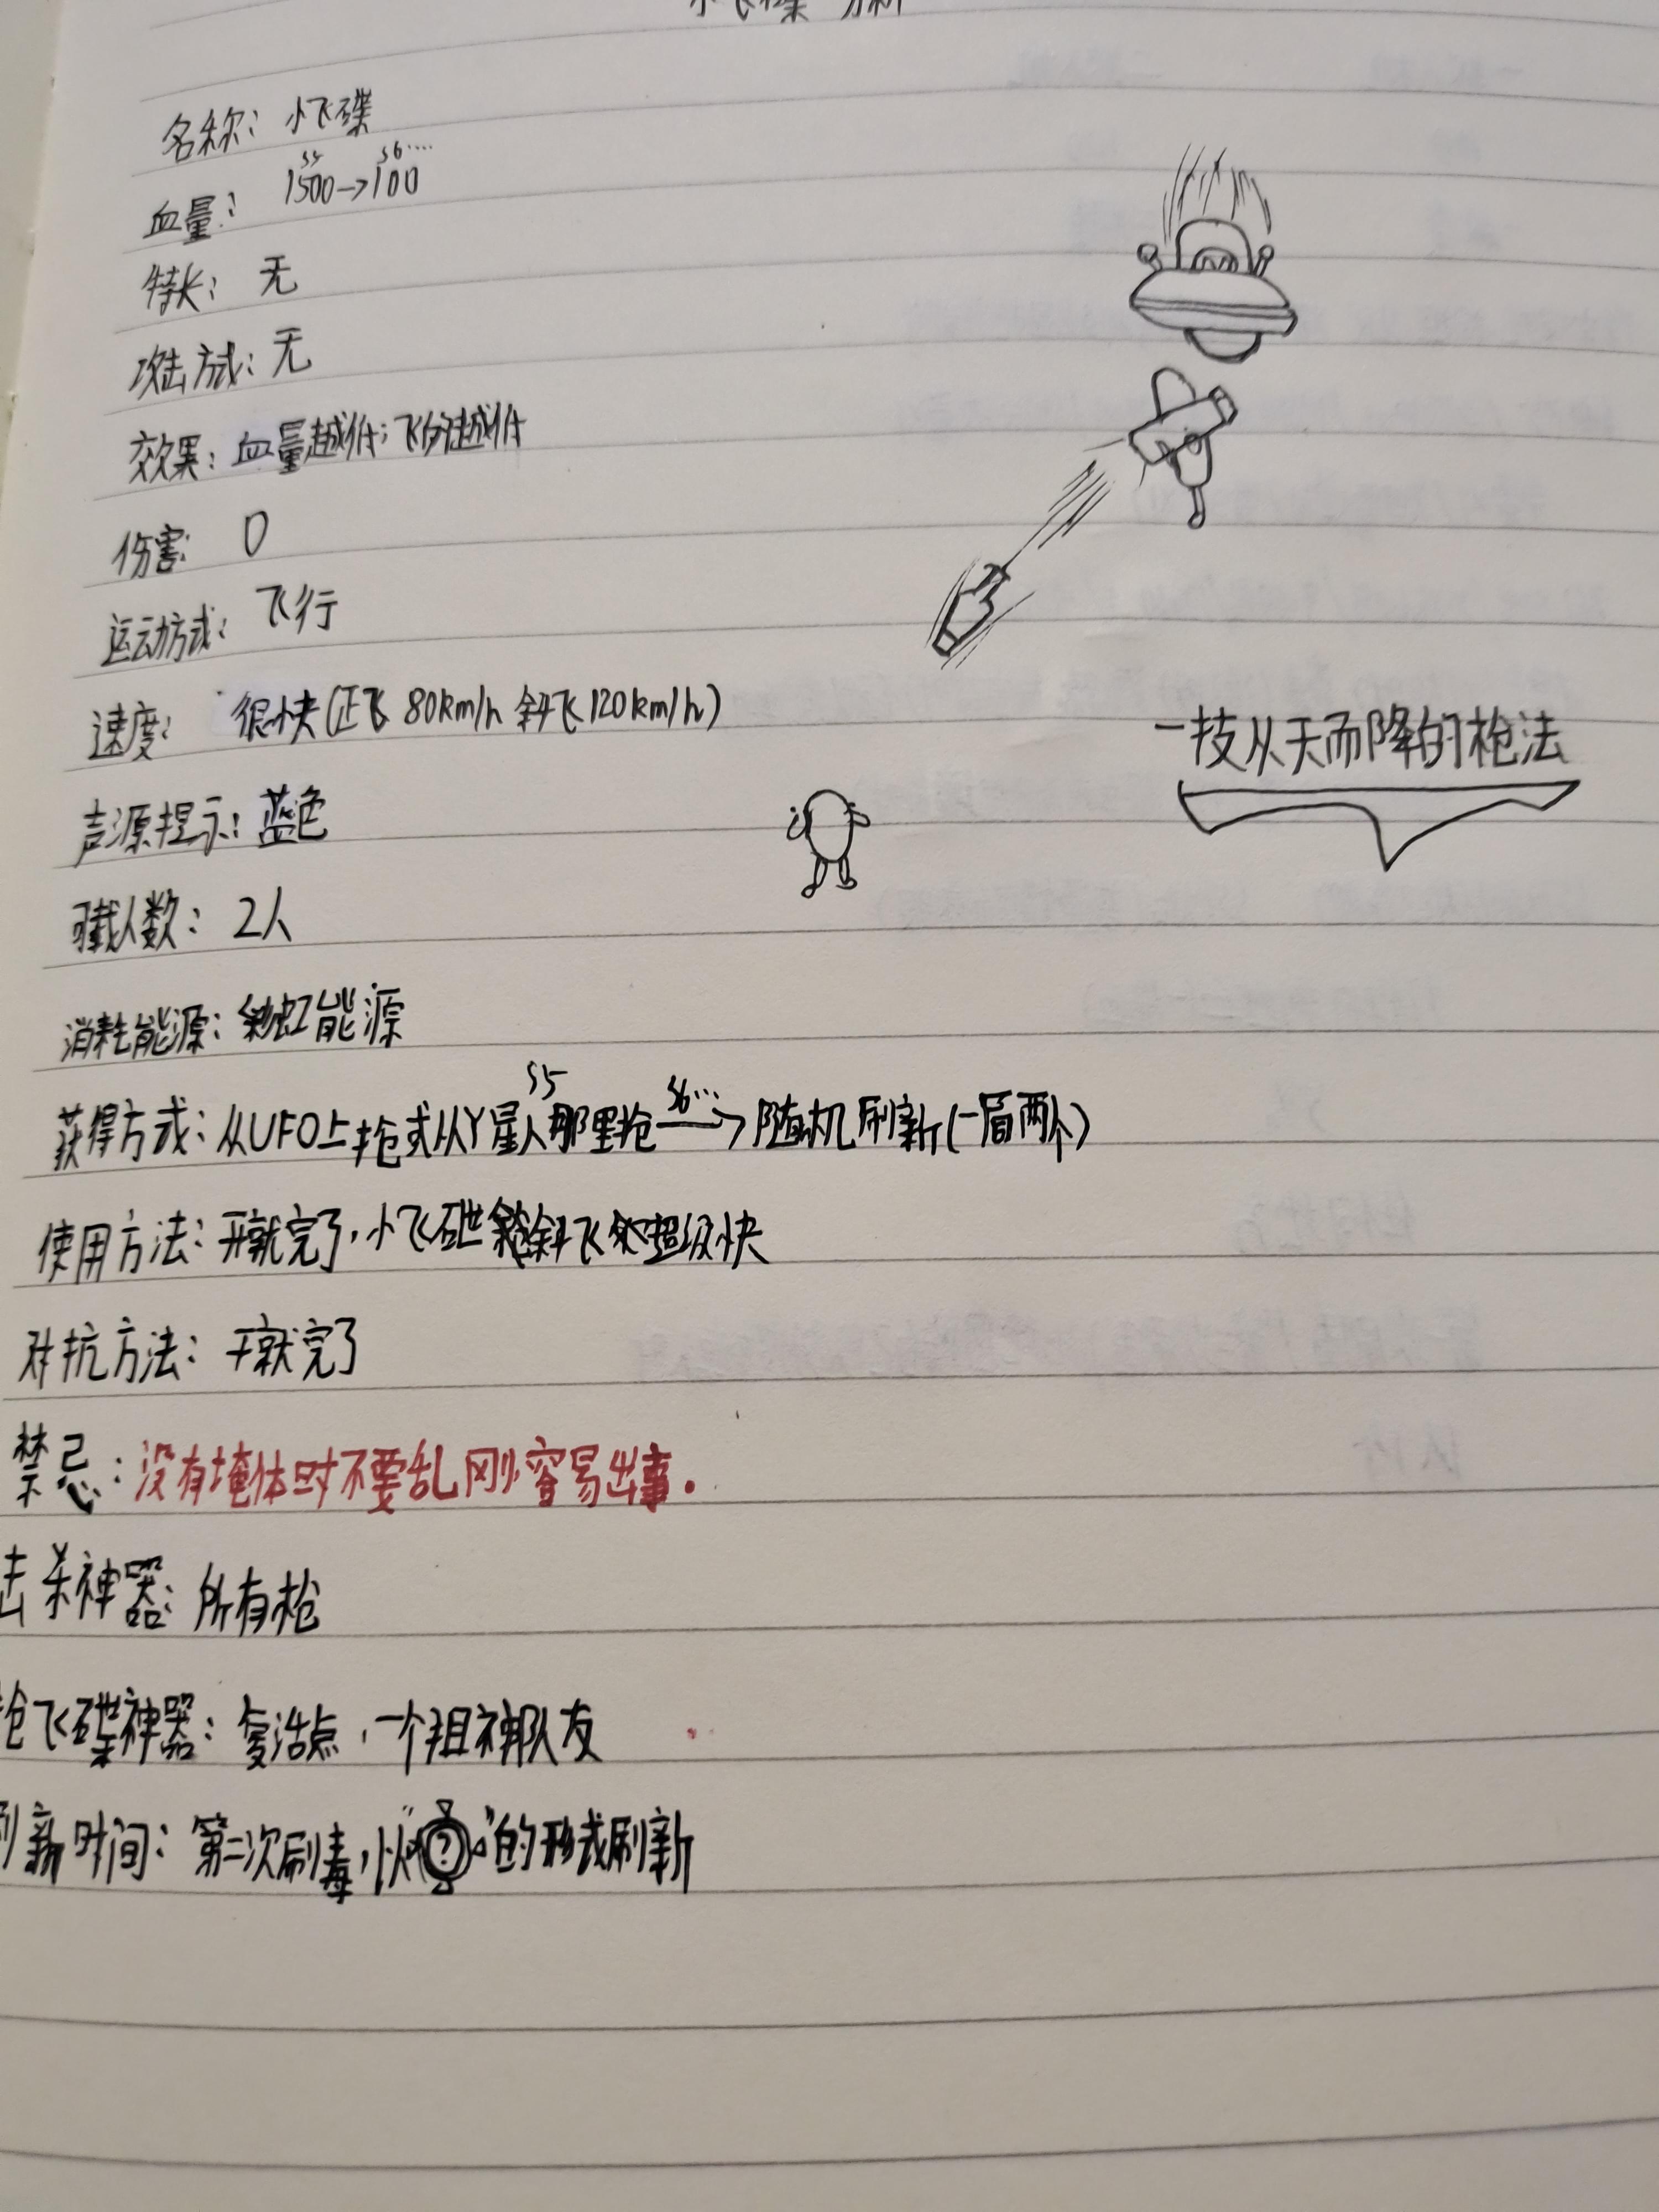 小飞碟 分析
名称：小飞碟
S5 S6……
血量：1500→100
特长：无
攻击方式：无
效果：血量越低；飞的越低
伤害：0
运动方式：飞行
速度：很快(正飞 80km/h 斜飞 120km/h)
一技从天而降的枪法
声源提示：蓝色
可载人数：2人
消耗能源：彩虹能源
S5 S6…
获得方式：从UFO上抢或从Y星人那里抢→随机刷新(一局两个)
使用方法：开就完了，小飞碟斜飞超级快
对抗方法：干就完了
禁忌：没有掩体时不要乱刚，容易出事.
击杀神器：所有枪
抢飞碟神器：复活点，一个狙神队友
刷新时间：第二次刷毒，以“?”的形式刷新